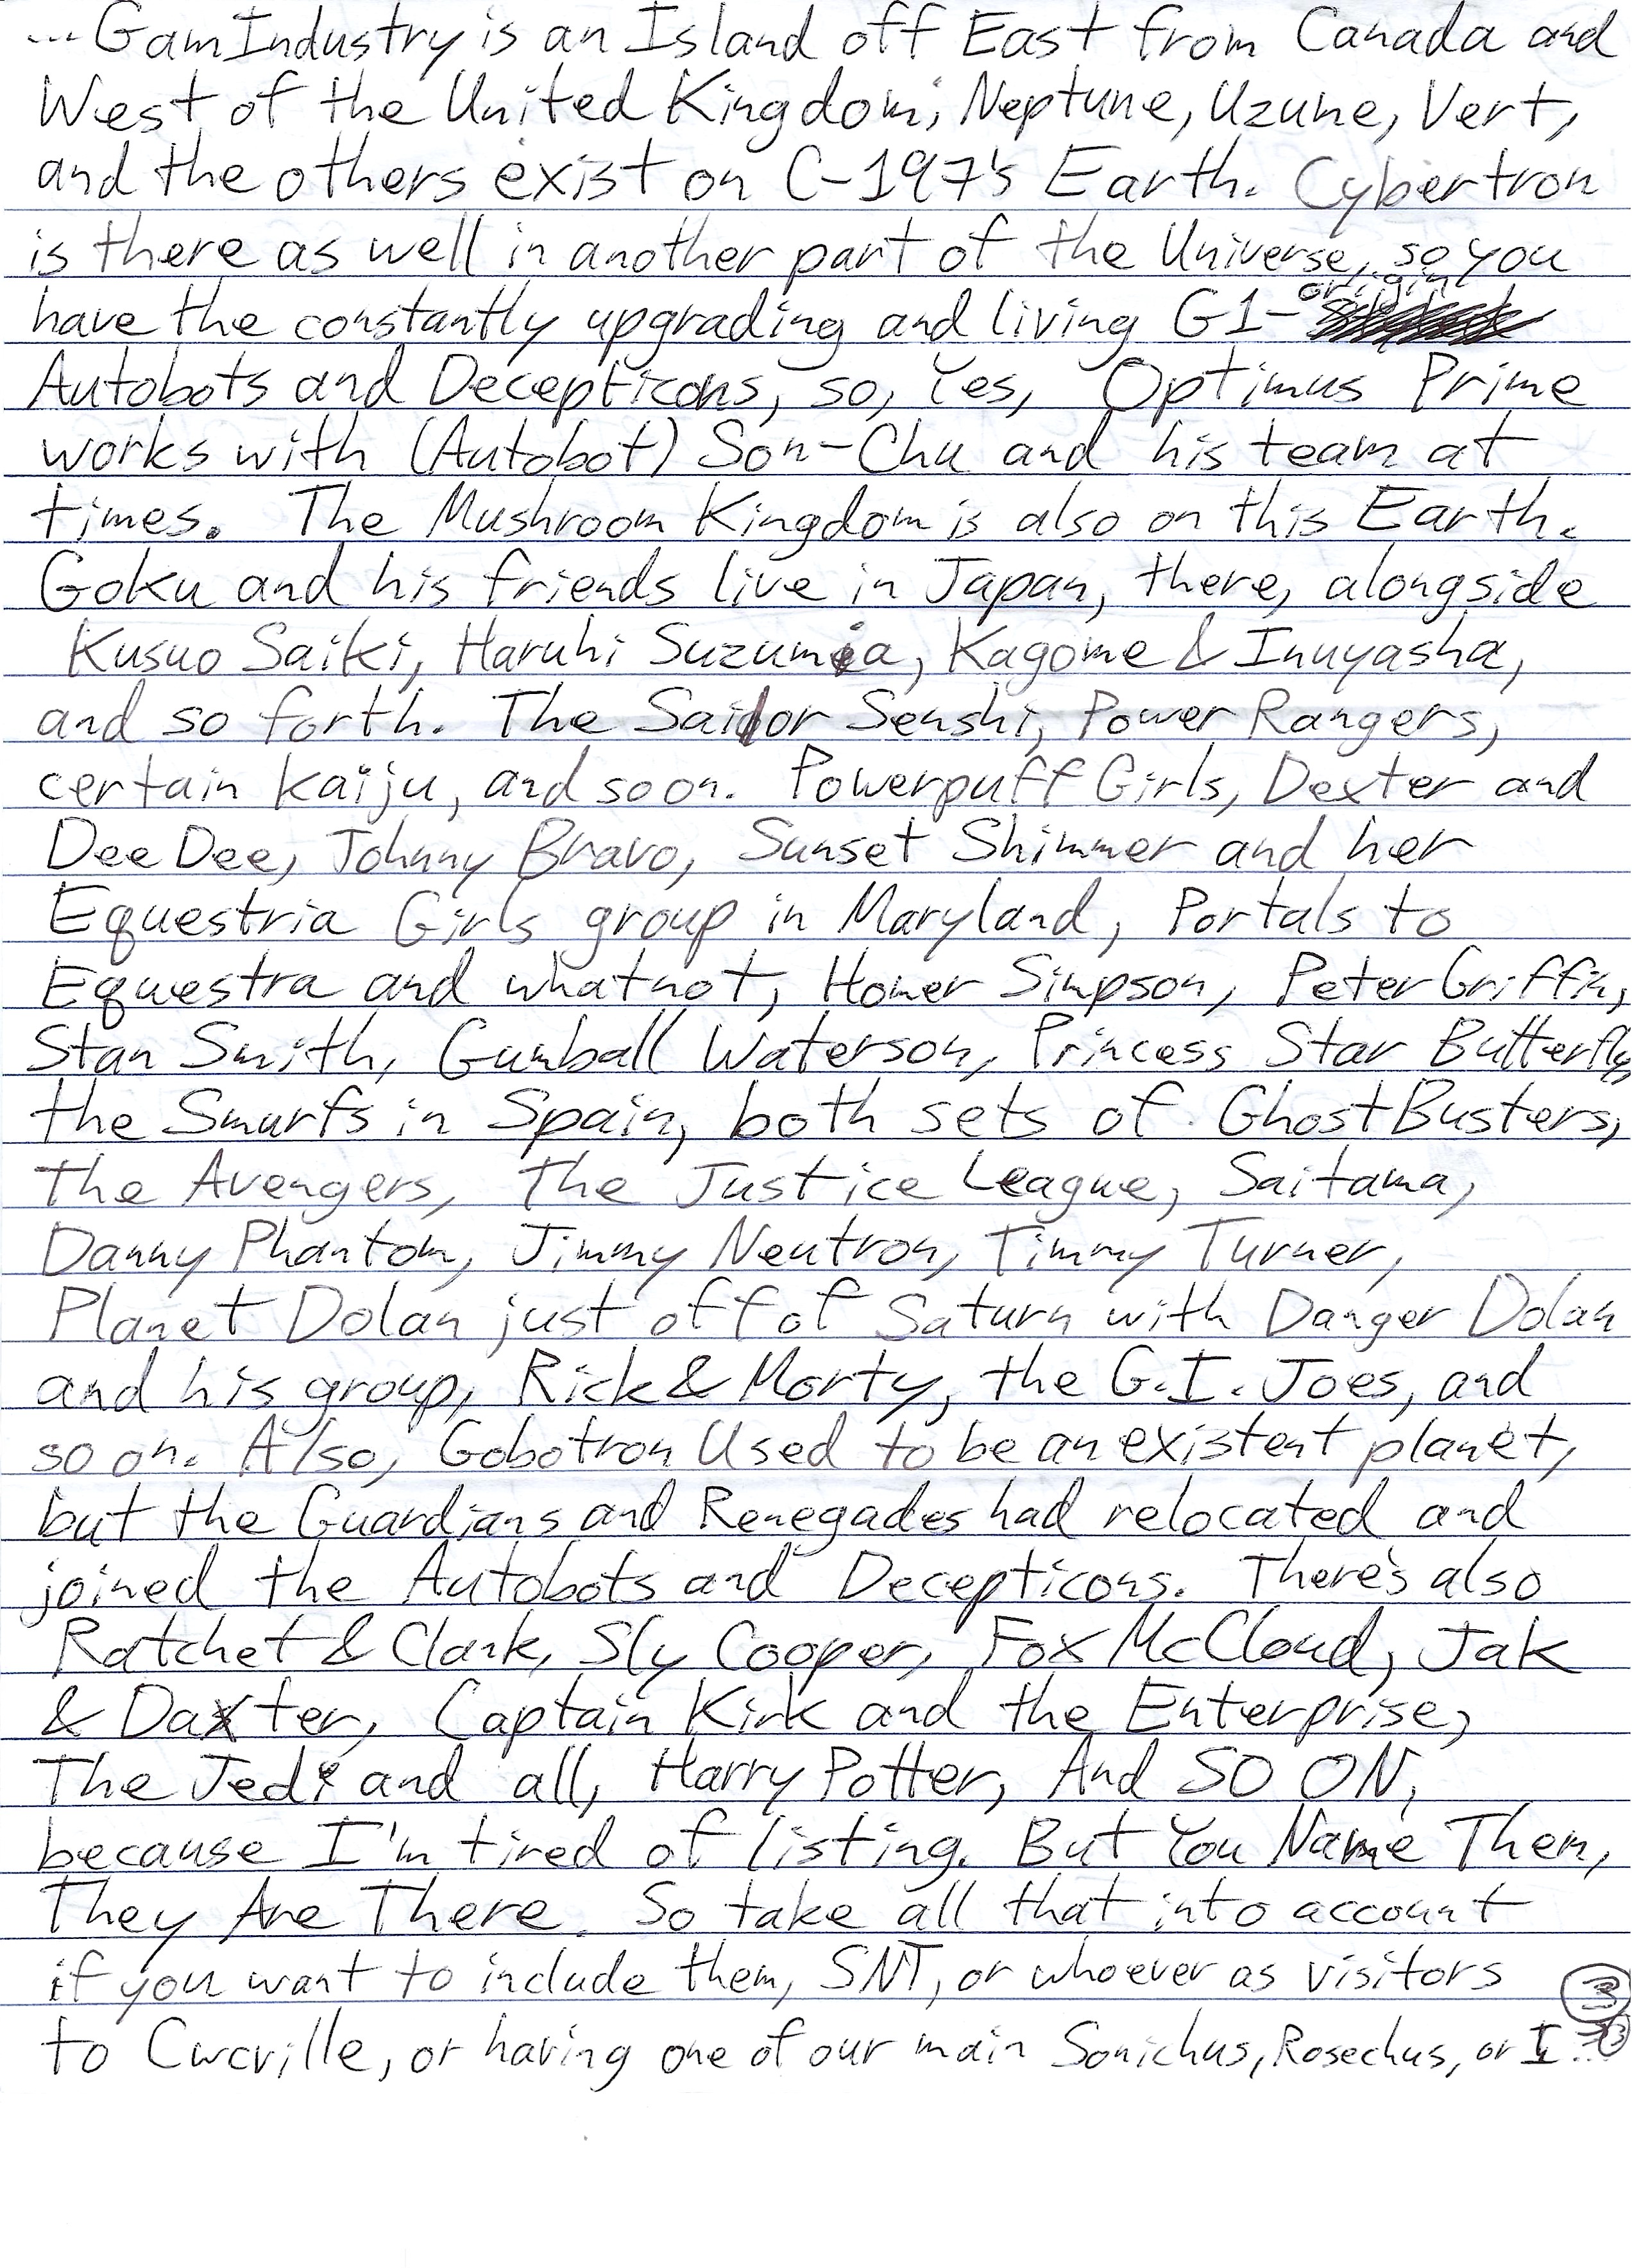 ...GamIndustry is an Island off East from Canada and
West of the United Kingdom; Neptune, Uzune, Vert,
and the others exist on C-197's Earth. Cybertron
is there as well in another part of the Universe, so you
have the constantly upgrading and living G1-origin
Autobots and Decepticons, so, Yes, Optimus Prime
works with (Autobot) Son-Chu and his team at
times. The Mushroom Kingdom is also on this Earth.
Goku and his friends live in Japan, there, alongside
Kusuo Saiki, Haruhi Suzumia, Kagome & Inuyasha,
and so forth. The Sailor Senshi, Power Rangers,
certain kaiju, and so on. Powerpuff Girls, Dexter and
Dee Dee, Johnny Bravo, Sunset Shimmer and her
Equestria Girls group in Maryland, Portals to
Equestra and whatnot, Homer Simpson, Peter Griffin,
Stan Smith, Gumball Waterson, Princess Star Butterfly,
the Smurfs in Spain, both sets of GhostBusters,
the Avengers, The Justice League, Saitama,
Danny Phantom, Jimmy Neutron, Timmy Turner,
Planet Dolan just off of Saturn with Danger Dolan
and his group, Rick & Morty, the G.I. Joes, and
so on. Also, Gobotron Used to be an existent planet,
but the Guardians and Renegades had relocated and
joined the Autobots and Decepticons. There's also
Ratchet & Clank, Sly Cooper, Fox McCloud, Jak
& Daxter, Captain Kirk and the Enterprise,
The Jedi and all, Harry Potter, And SO ON,
because I'm tired of listing. But You Name Them,
They Are There. So take all that into account
if you want to include them, SNT, or whoever as visitors
to Cwcville, or having one of our main Sonichus, Rosechus, or I...
3